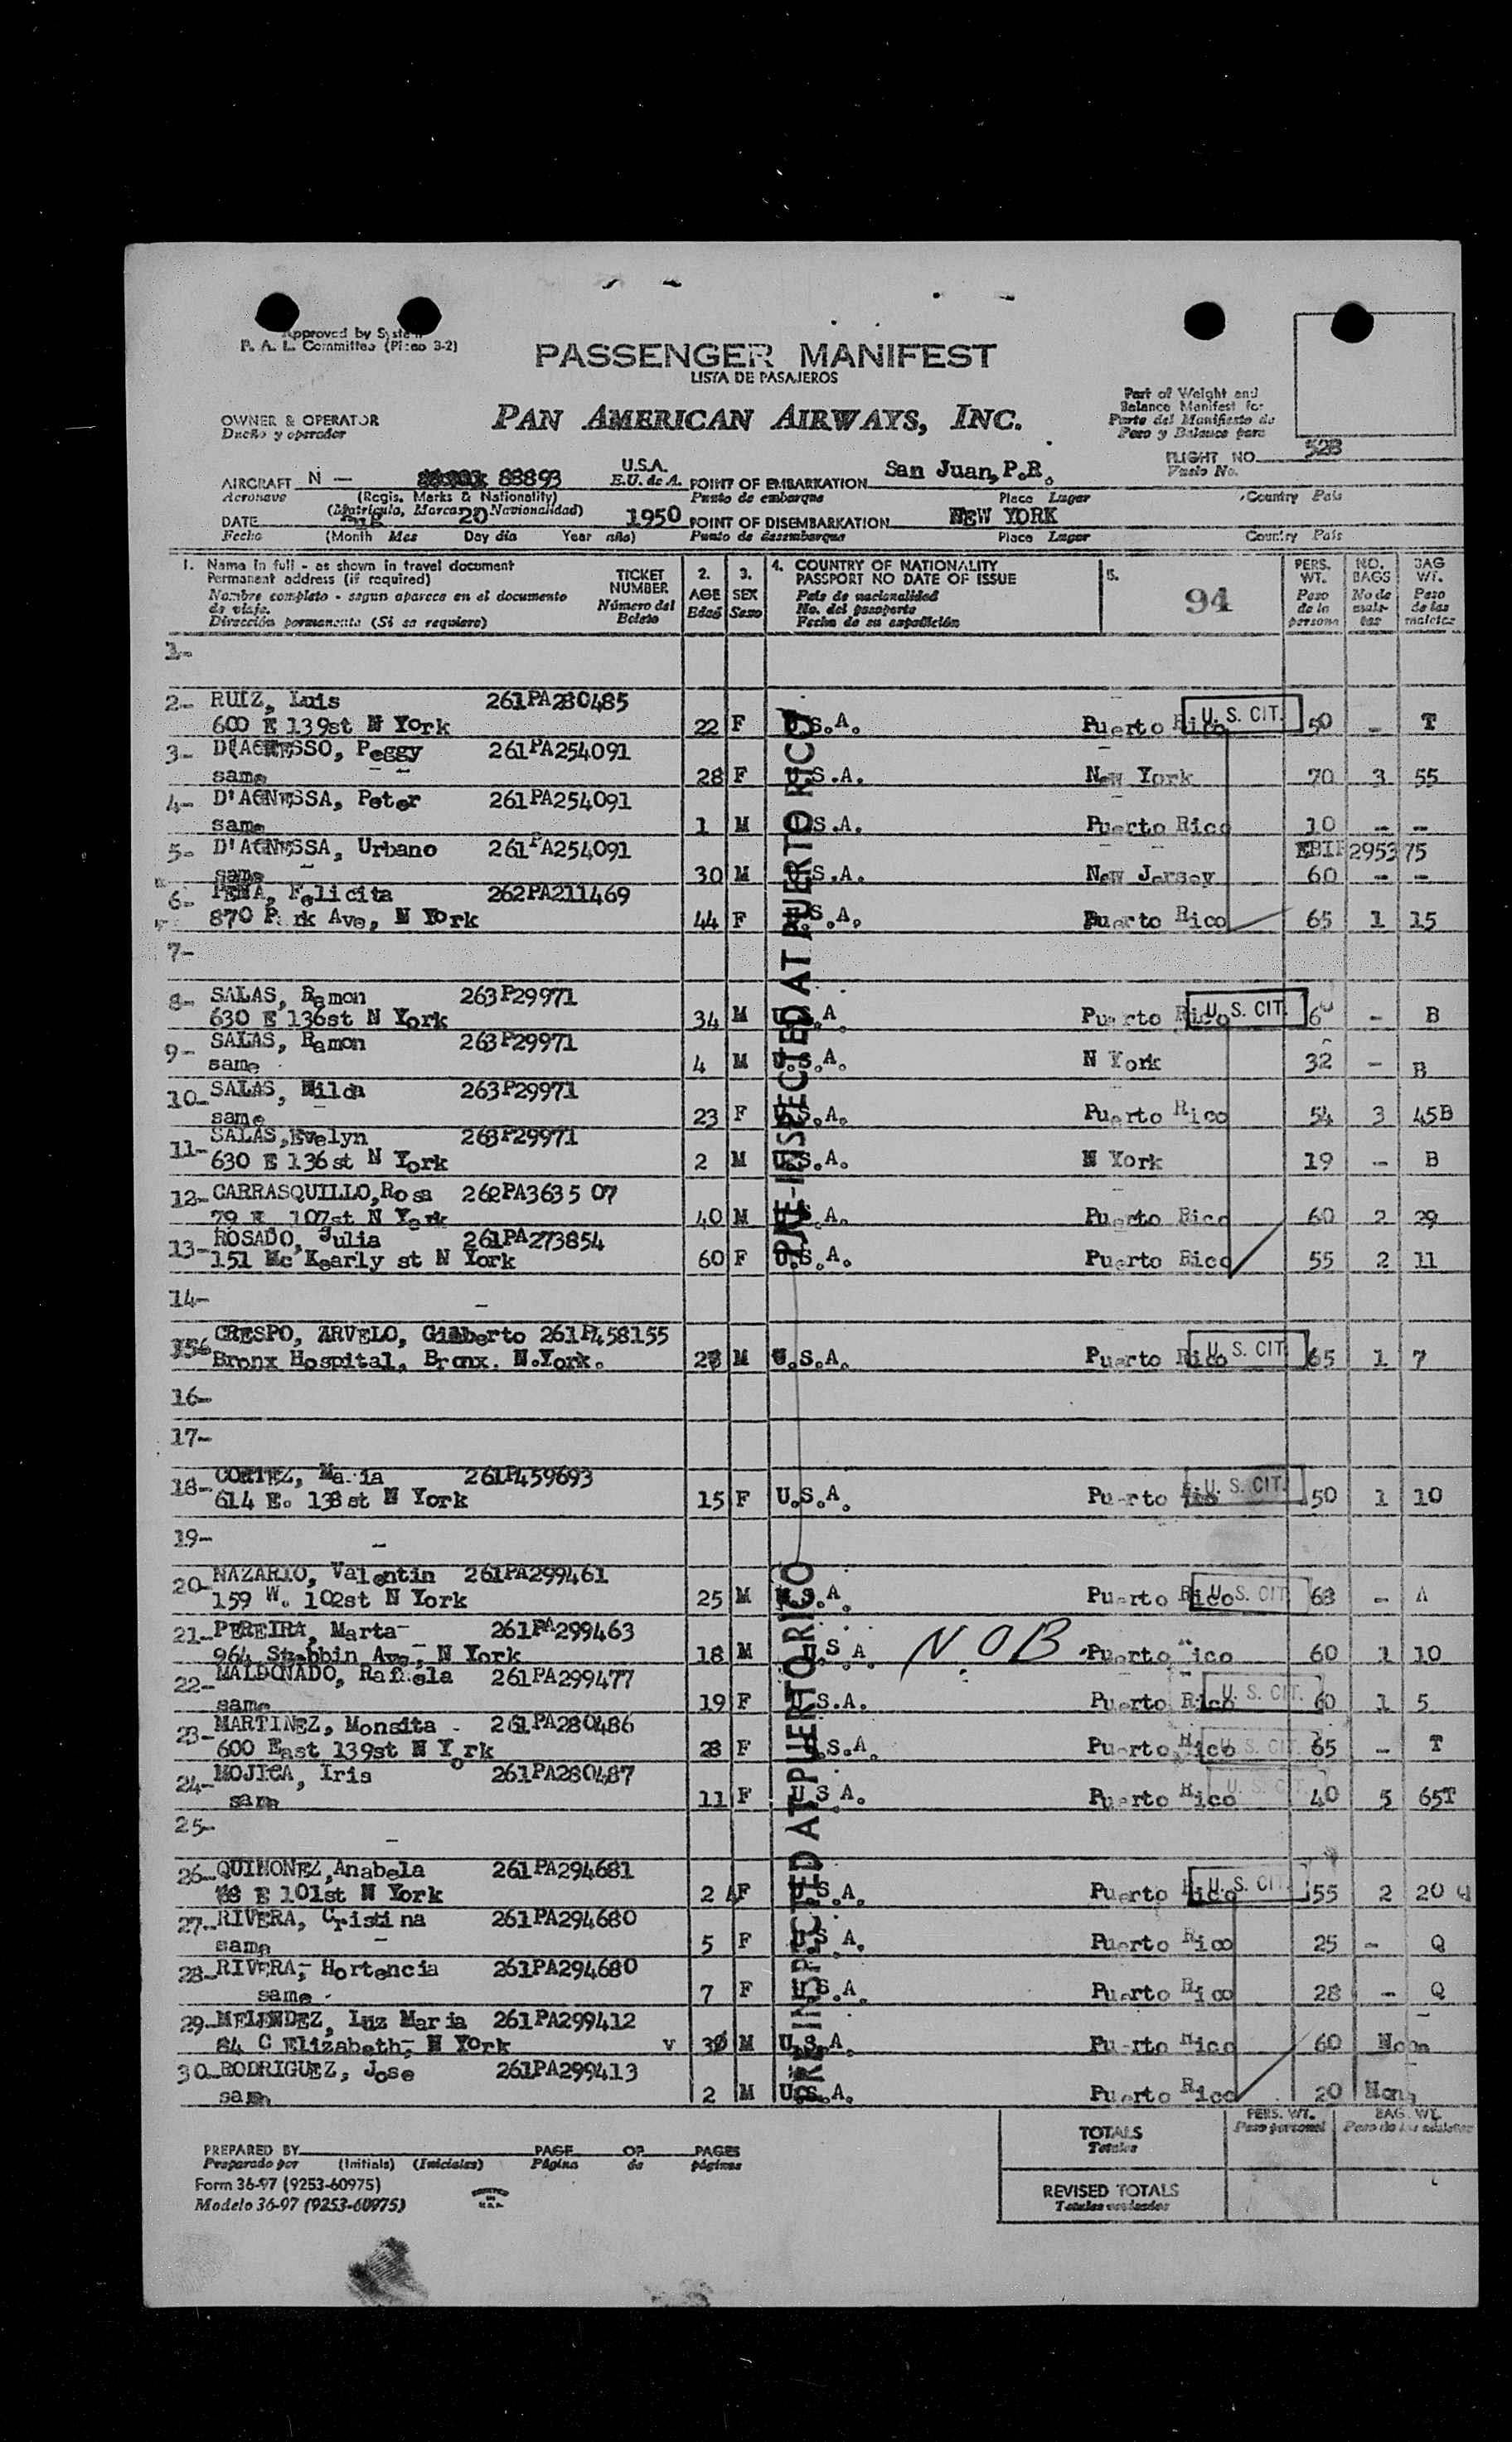 Approved by System
P. A. L. Committee (Pieao 3-2)
PASSENGER MANIFEST
LISTA DE PASAJEROS
PAN AMERICAN AIRWAYS, INC.
OWNER & OPERATOR
Dueño y operador
Part of Weight and
Balance Manifest for
Parte del Manifiesto de
Peso y Balance para
FLIGHT NO. 528
Vuelo No.
AIRCRAFT N — 88893 U.S.A. POINT OF EMBARKATION San Juan, P.R.
Aeronave (Regis. Marks & Nationality) E.U. de A. Punto de embarque Place Lugar Country Pais
(Matrícula, Marcas y Nacionalidad)
DATE Aug 20 1950 POINT OF DISEMBARKATION NEW YORK
Fecha (Month Mes Day dia Year año) Punto de desembarque Place Lugar Country Pais
1. Name in full - as shown in travel document
Permanent address (if required)
Nombre completo - segun aparece en el documento
de viaje.
Dirección permanente (Si se requiere)
TICKET
NUMBER
Número del
Boleto
2.
AGE
Edad
3.
SEX
Sexo
4. COUNTRY OF NATIONALITY
PASSPORT NO DATE OF ISSUE
País de nacionalidad
No. del pasaporte
Fecha de su expedición
5.
94
PERS.
WT.
Peso
de la
persona
NO.
BAGS
No de
male-
tas
BAG
WT.
Peso
de las
maletas
1-
2- RUIZ, Luis 261PA280485
600 E 139st N York 22 F U.S.A. Puerto Rico U. S. CIT. 50 - T
3- D'AGNESSO, Peggy 261PA254091
same 28 F U.S.A. New York 70 3 55
4- D'AGNESSA, Peter 261PA254091
same 1 M U.S.A. Puerto Rico 10 - -
5- D'AGNESSA, Urbano 261PA254091 295375
same 30 M U.S.A. New Jersey 60 - -
6- PENA, Felicita 262PA211469
870 Park Ave, N York 44 F U.S.A. Puerto Rico 65 1 15
7-
8- SALAS, Ramon 263P29971
630 E 136st N York 34 M U.S.A Puerto Rico U. S. CIT. - B
9- SALAS, Ramon 263P29971
same 4 M U.S.A. N York 32 - B
10- SALAS, Nilda 263P29971
same 23 F U.S.A. Puerto Rico 54 3 45B
11- SALAS,Evelyn 263P29971
630 E 136st N York 2 M U.S.A. N York 19 - B
12- CARRASQUILLO,Rosa 262PA3635 07
79 E 107st N York 40 M U.S.A. Puerto Rico 60 2 29
13- ROSADO, Julia 261PA273854
151 Mc Kearly st N York 60 F U.S.A. Puerto Rico 55 2 11
PRE-INSPECTED AT PUERTO RICO
14-
15- CRESPO, ARVELO, Gilberto 261P458155
Bronx Hospital, Bronx. N.York. M U.S.A. Puerto Rico U. S. CIT. 65 1 7
16-
17-
18- CORTEZ, Maria 261P459693
614 E. 138st N York 15 F U.S.A. Puerto Rico U. S. CIT. 50 1 10
19-
20- NAZARIO, Valentin 261PA299461
159 W. 102st N York 25 M U.S.A. Puerto Rico U. S. CIT. 68 - A
21- PEREIRA, Marta 261PA299463
964 Stebbin Ave, N York 18 M U.S.A. N.O.B. Puerto Rico 60 1 10
22- MALDONADO, Rafaela 261PA299477
same 19 F U.S.A. Puerto Rico U. S. CIT. 60 1 5
23- MARTINEZ, Monsita 261PA280486
600 East 139st N York 28 F U.S.A. Puerto Rico U. S. CIT. 65 - T
24- MOJICA, Iris 261PA280487
same 11 F U.S.A. Puerto Rico U. S. CIT. 40 5 65T
25-
26- QUINONEZ,Anabela 261PA294681
E 101st N York 24 F U.S.A. Puerto Rico U. S. CIT. 55 2 20 Q
27- RIVERA, Cristina 261PA294680
same 5 F U.S.A. Puerto Rico 25 - Q
28- RIVERA, Hortencia 261PA294680
same 7 F U.S.A. Puerto Rico 28 - Q
29- MELENDEZ, Luz Maria 261PA299412
84 C Elizabeth, N York v 30 M U.S.A. Puerto Rico 60 None
30- RODRIGUEZ, Jose 261PA299413
same 2 M U.S.A. Puerto Rico 20 None
PRE-INSPECTED AT PUERTO RICO
PREPARED BY PAGE OF PAGES
Preparado por (Initials) (Iniciales) Página de páginas
Form 36-97 (9253-60975)
Modelo 36-97 (9253-60975)
PERS. WT. BAG WT.
Peso personal Peso de las maletas
TOTALS
Totales
REVISED TOTALS
Totales revisados